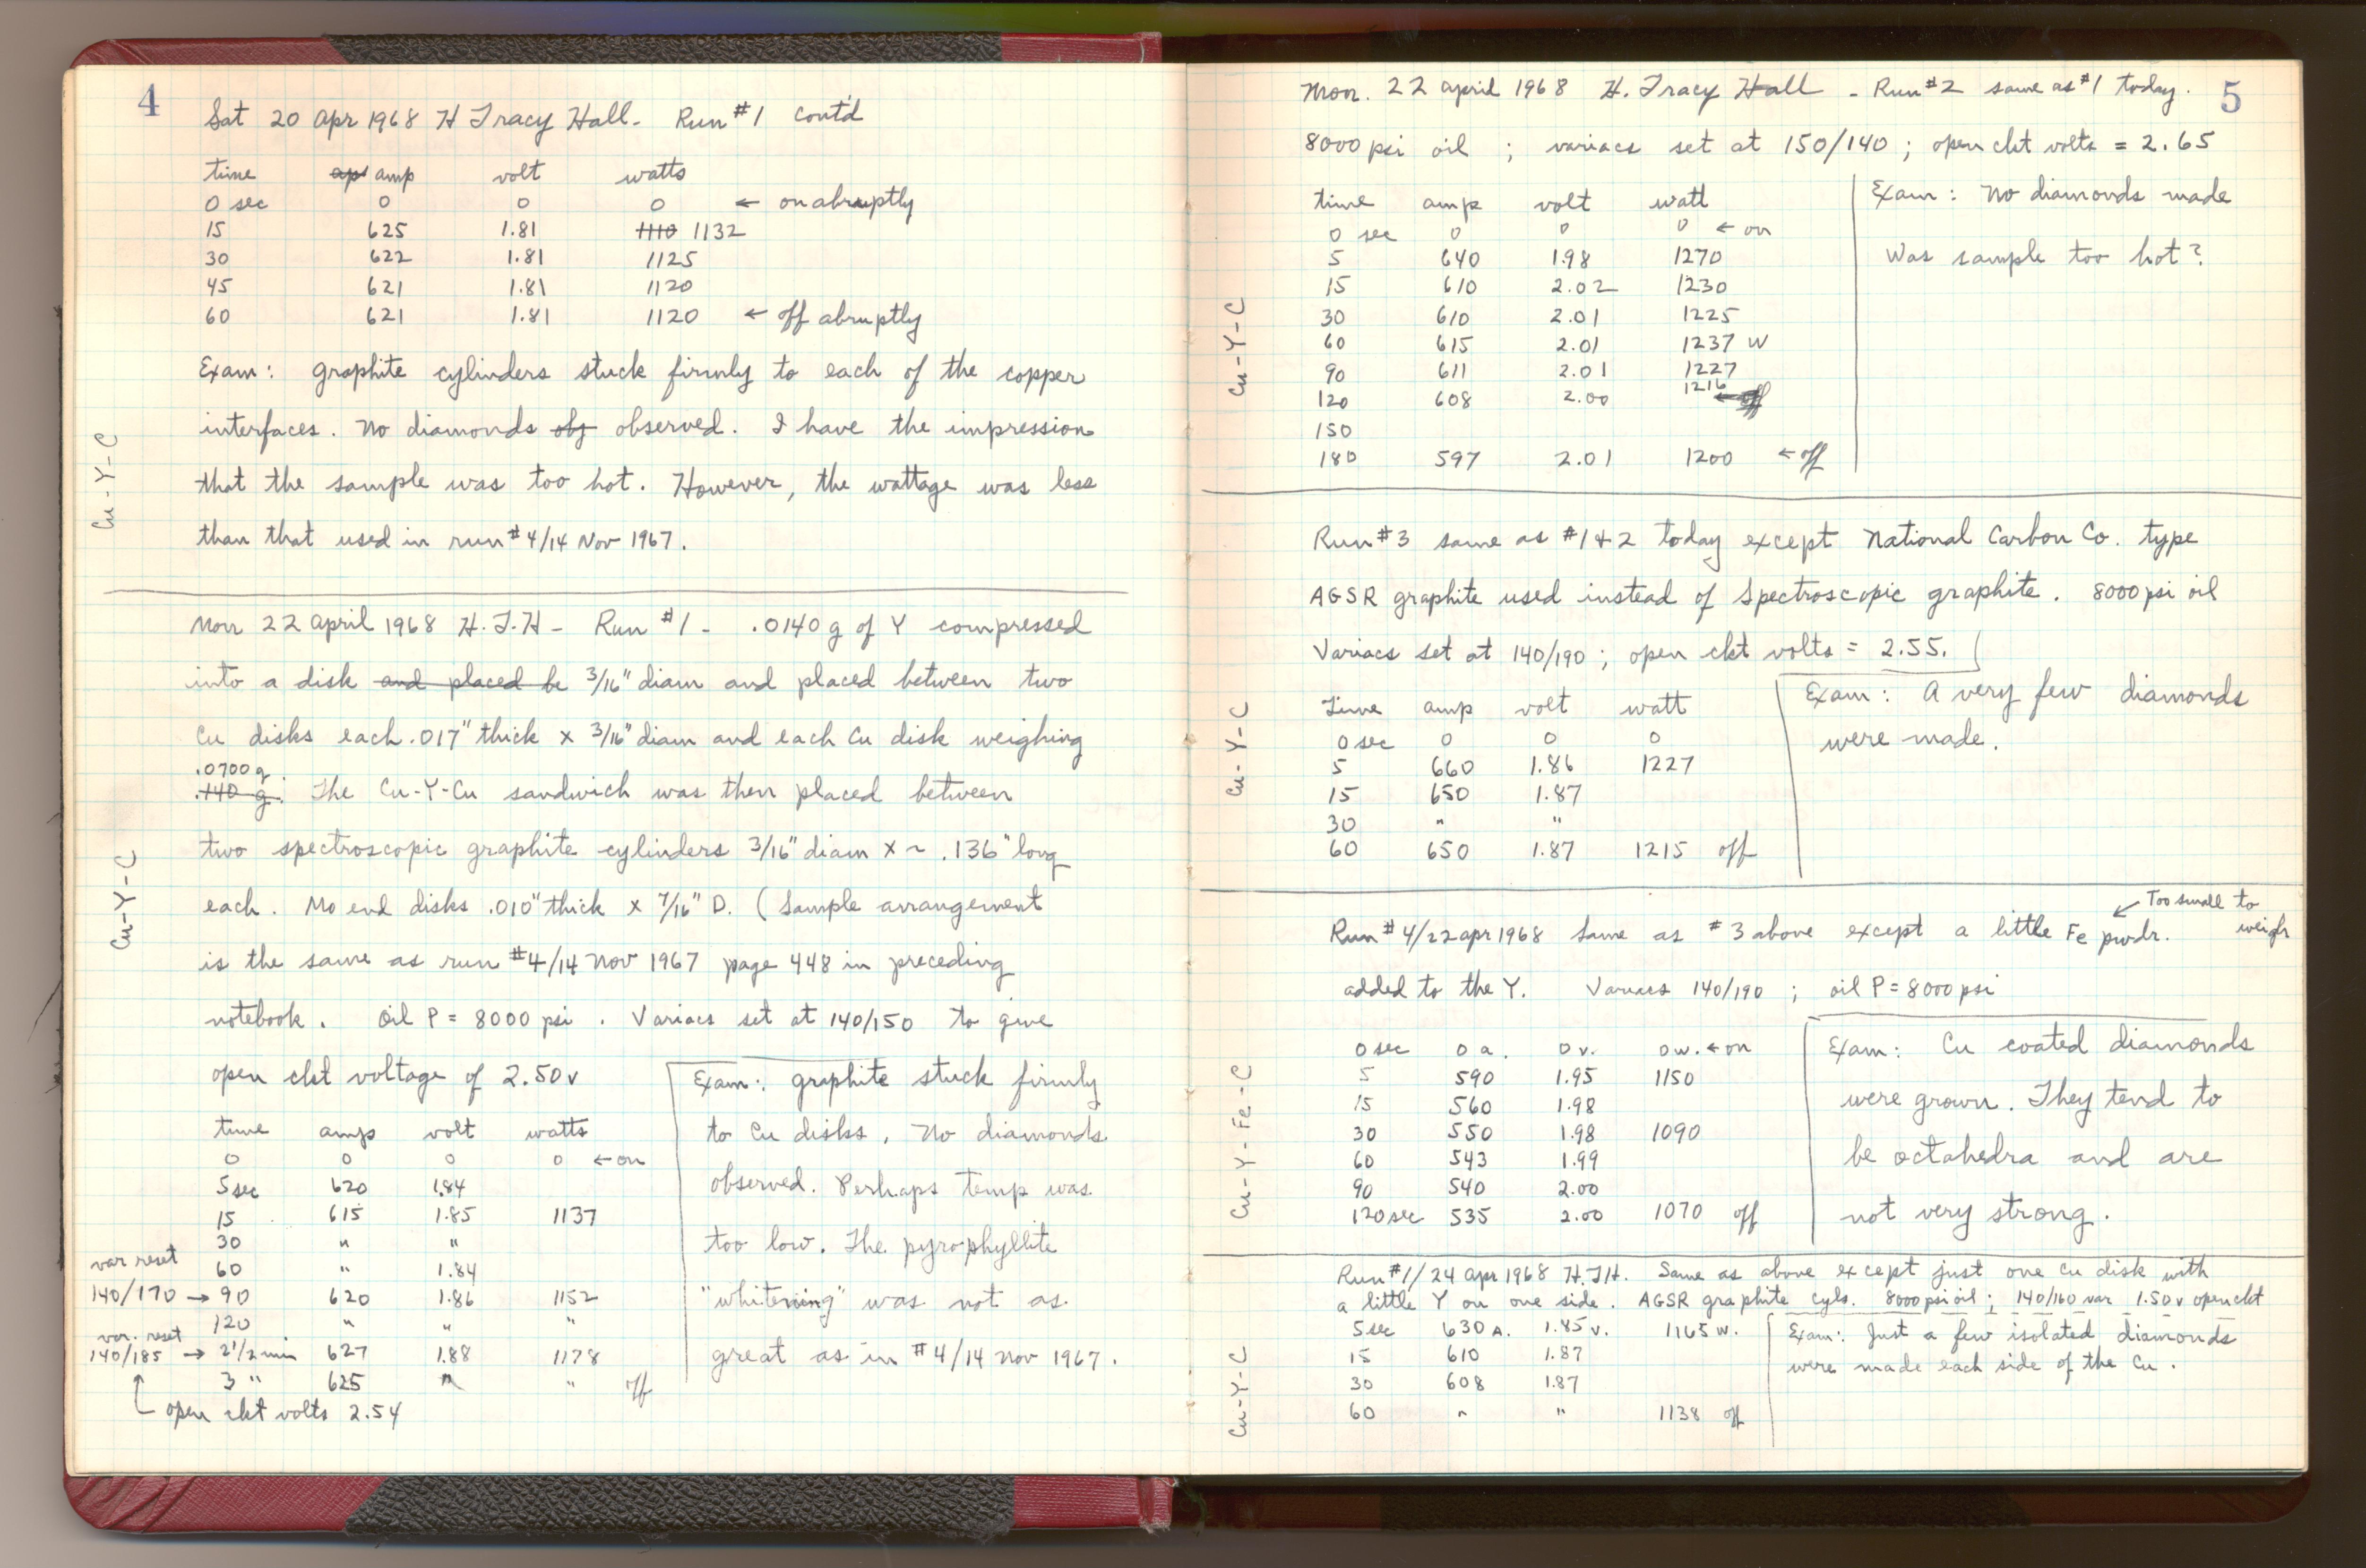 4
Sat 20 Apr 1968 H Tracy Hall - Run #1 cont'd
time amp volt watts
0 sec 0 0 0 ← on abruptly
15 625 1.81 1110 1132
30 622 1.81 1125
45 621 1.81 1120
60 621 1.81 1120 ← off abruptly
Exam: graphite cylinders stuck firmly to each of the copper
interfaces. No diamonds obs observed. I have the impression
that the sample was too hot. However, the wattage was less
than that used in run #4/14 Nov 1967.
Cu-Y-C
Mon 22 April 1968 H.T.H - Run #1 - .0140 g of Y compressed
into a disk and placed be 3/16" diam and placed between two
Cu disks each .017" thick x 3/16" diam and each Cu disk weighing
.0700 g.
.140 g. The Cu-Y-Cu sandwich was then placed between
two spectroscopic graphite cylinders 3/16" diam x ~ .136" long
each. Mo end disks .010" thick x 7/16" D. (Sample arrangement
is the same as run #4/14 Nov 1967 page 448 in preceding
notebook. Oil P = 8000 psi. Variacs set at 140/150 to give
open ckt voltage of 2.50v
Cu-Y-C
time amp volt watts
0 0 0 0 ← on
5 sec 620 1.84
15 615 1.85 1137
30 " "
60 " 1.84
var reset
140/170 → 90 620 1.86 1152
120 " " "
var. reset
140/185 → 2 1/2 min 627 1.88 1178
3 " 625 " " off
open ckt volts 2.54
Exam: graphite stuck firmly
to Cu disks. No diamonds
observed. Perhaps temp was
too low. The pyrophyllite
"whitening" was not as
great as in #4/14 Nov 1967.
5
Mon. 22 April 1968 H. Tracy Hall - Run #2 same as #1 today.
8000 psi oil ; variacs set at 150/140 ; open ckt volts = 2.65
time amp volt watt
0 sec 0 0 0 ← on
5 640 1.98 1270
15 610 2.02 1230
30 610 2.01 1225
60 615 2.01 1237 W
90 611 2.01 1227
120 608 2.00 1216
150
180 597 2.01 1200 ← off
Exam: No diamonds made
Was sample too hot?
Cu-Y-C
Run #3 same as #1 & 2 today except National Carbon Co. type
AGSR graphite used instead of Spectroscopic graphite. 8000 psi oil
Variacs set at 140/190 ; open ckt volts = 2.55.
Time amp volt watt
0 sec 0 0 0
5 660 1.86 1227
15 650 1.87
30 " "
60 650 1.87 1215 off
Exam: A very few diamonds
were made.
Cu-Y-C
Too small to
weigh
Run #4/22 Apr 1968 Same as #3 above except a little Fe pwdr.
added to the Y. Variacs 140/190 ; oil P = 8000 psi
0 sec 0 a. 0 v. 0 w. ← on
5 590 1.95 1150
15 560 1.98
30 550 1.98 1090
60 543 1.99
90 540 2.00
120 sec 535 2.00 1070 off
Exam: Cu coated diamonds
were grown. They tend to
be octahedra and are
not very strong.
Cu-Y-Fe-C
Run #1/24 Apr 1968 H.T.H. Same as above except just one Cu disk with
a little Y on one side. AGSR graphite cyls. 8000 psi oil ; 140/160 var 1.50 v open ckt
5 sec 630 A. 1.85 v. 1165 w.
15 610 1.87
30 608 1.87
60 " " 1138 off
Exam: Just a few isolated diamonds
were made each side of the Cu.
Cu-Y-C